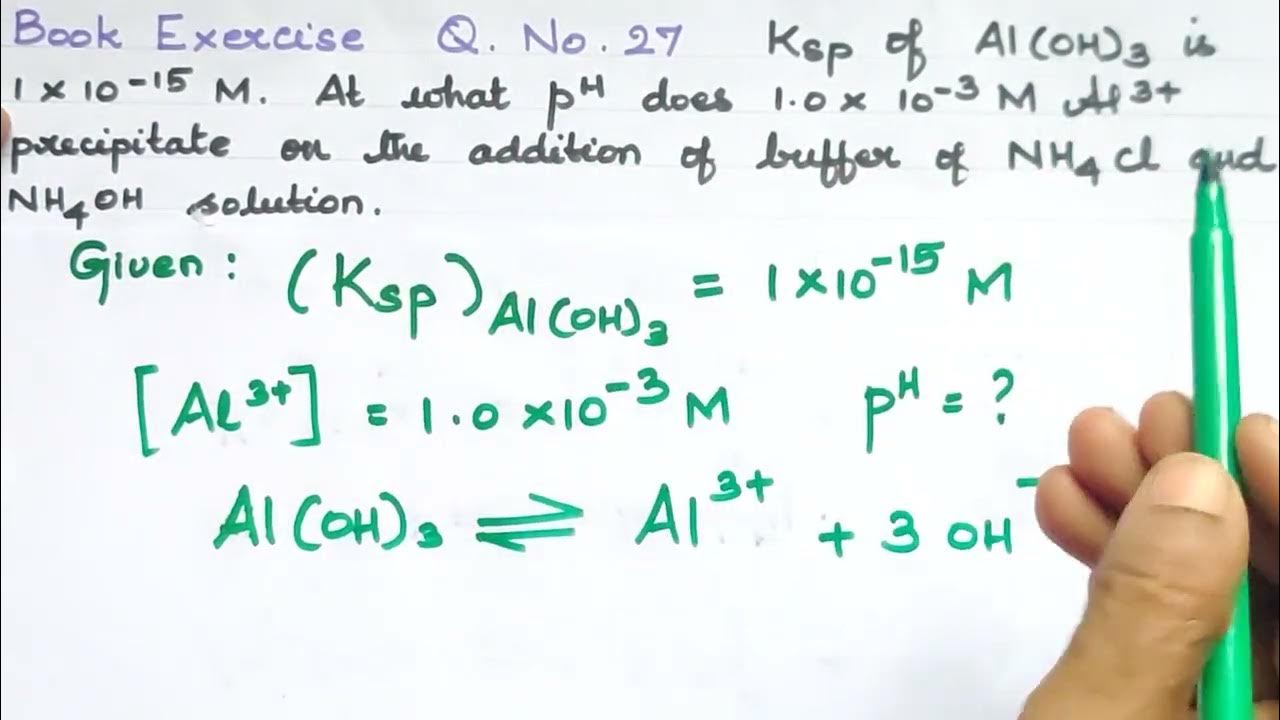 Book Exercise Q. No. 27 Ksp of Al(OH)3 is
1 × 10-15 M. At what pH does 1.0 × 10-3 M Al3+
precipitate on the addition of buffer of NH4Cl and
NH4OH solution.
Given : (Ksp)Al(OH)3 = 1 × 10-15 M
[Al3+] = 1.0 × 10-3 M pH = ?
Al(OH)3 ⇌ Al3+ + 3 OH-